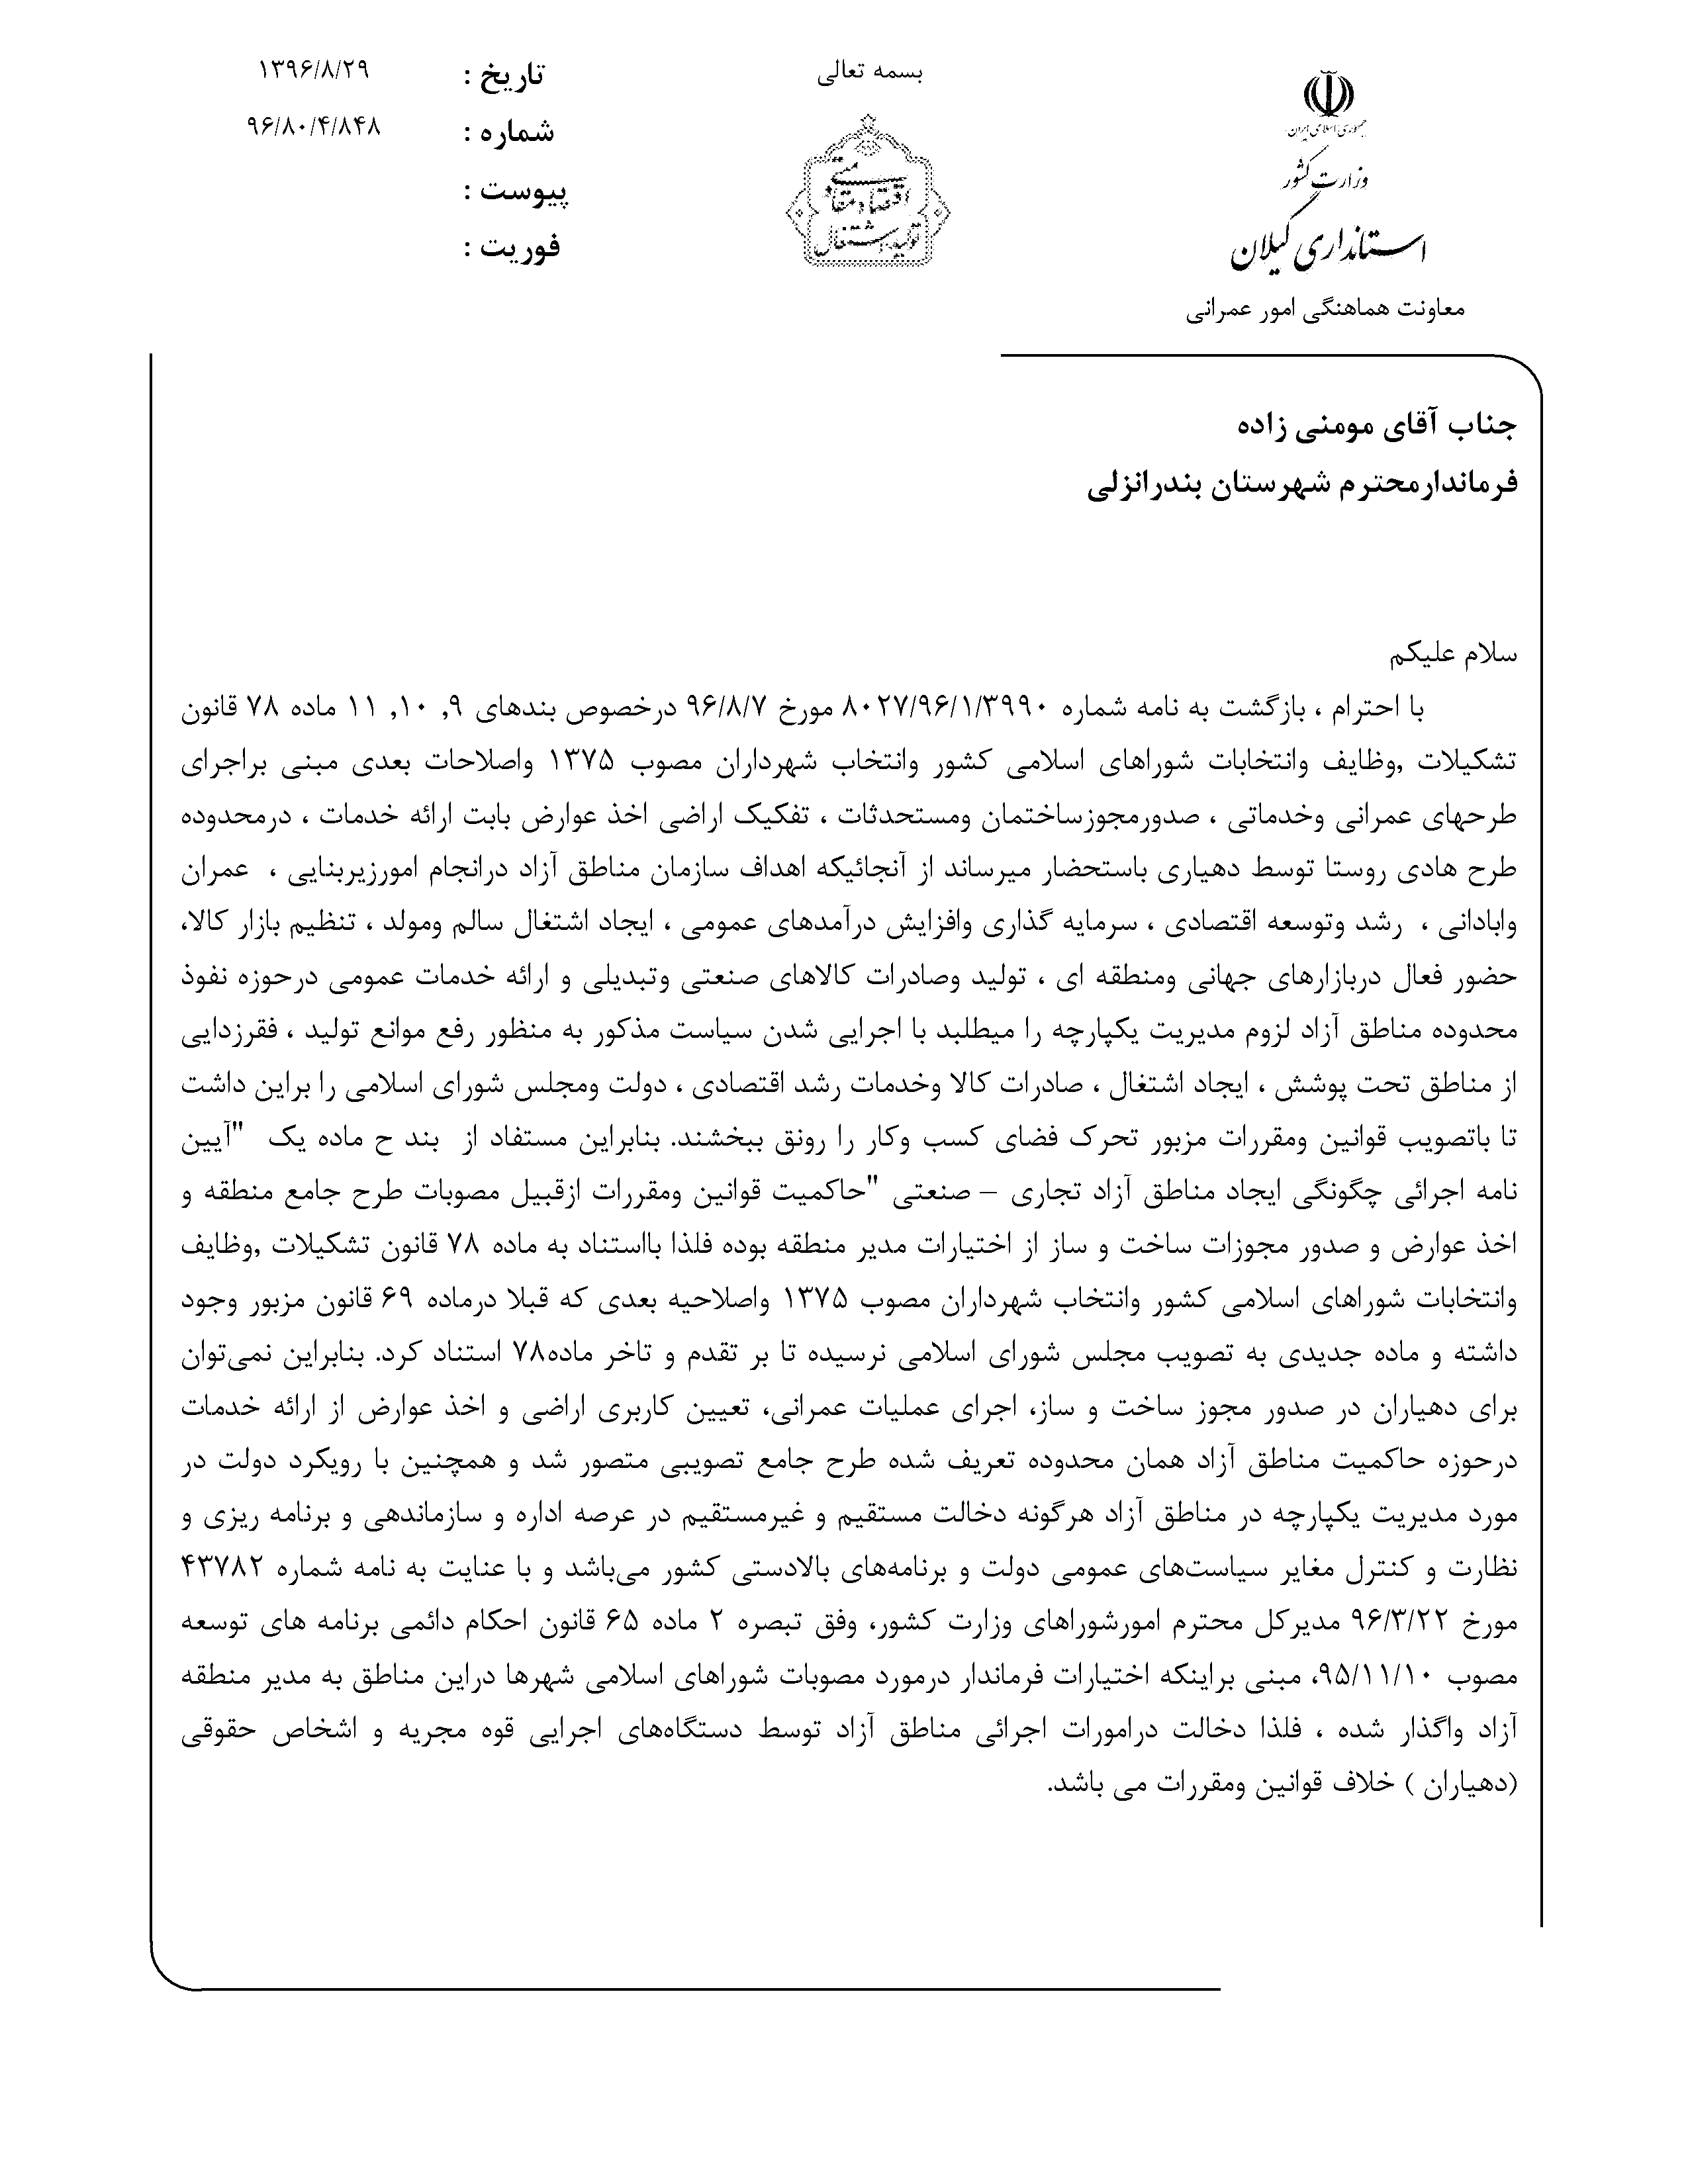 بسمه تعالی
جمهوری اسلامی ایران
وزارت کشور
استانداری گیلان
معاونت هماهنگی امور عمرانی
اقتصاد مقاومتی
تولید اشتغال
تاریخ : ۱۳۹۶/۸/۲۹
شماره : ۹۶/۸۰/۴/۸۴۸
پیوست :
فوریت :
جناب آقای مومنی زاده
فرماندارمحترم شهرستان بندرانزلی
سلام علیکم
با احترام ، بازگشت به نامه شماره ۸۰۲۷/۹۶/۱/۳۹۹۰ مورخ ۹۶/۸/۷ درخصوص بندهای ۹, ۱۰, ۱۱ ماده ۷۸ قانون
تشکیلات ,وظایف وانتخابات شوراهای اسلامی کشور وانتخاب شهرداران مصوب ۱۳۷۵ واصلاحات بعدی مبنی براجرای
طرحهای عمرانی وخدماتی ، صدورمجوزساختمان ومستحدثات ، تفکیک اراضی اخذ عوارض بابت ارائه خدمات ، درمحدوده
طرح هادی روستا توسط دهیاری باستحضار میرساند از آنجائیکه اهداف سازمان مناطق آزاد درانجام امورزیربنایی ، عمران
وابادانی ، رشد وتوسعه اقتصادی ، سرمایه گذاری وافزایش درآمدهای عمومی ، ایجاد اشتغال سالم ومولد ، تنظیم بازار کالا،
حضور فعال دربازارهای جهانی ومنطقه ای ، تولید وصادرات کالاهای صنعتی وتبدیلی و ارائه خدمات عمومی درحوزه نفوذ
محدوده مناطق آزاد لزوم مدیریت یکپارچه را میطلبد با اجرایی شدن سیاست مذکور به منظور رفع موانع تولید ، فقرزدایی
از مناطق تحت پوشش ، ایجاد اشتغال ، صادرات کالا وخدمات رشد اقتصادی ، دولت ومجلس شورای اسلامی را براین داشت
تا باتصویب قوانین ومقررات مزبور تحرک فضای کسب وکار را رونق ببخشند. بنابراین مستفاد از بند ح ماده یک "آیین
نامه اجرائی چگونگی ایجاد مناطق آزاد تجاری – صنعتی "حاکمیت قوانین ومقررات ازقبیل مصوبات طرح جامع منطقه و
اخذ عوارض و صدور مجوزات ساخت و ساز از اختیارات مدیر منطقه بوده فلذا بااستناد به ماده ۷۸ قانون تشکیلات ,وظایف
وانتخابات شوراهای اسلامی کشور وانتخاب شهرداران مصوب ۱۳۷۵ واصلاحیه بعدی که قبلا درماده ۶۹ قانون مزبور وجود
داشته و ماده جدیدی به تصویب مجلس شورای اسلامی نرسیده تا بر تقدم و تاخر ماده۷۸ استناد کرد. بنابراین نمی‌توان
برای دهیاران در صدور مجوز ساخت و ساز، اجرای عملیات عمرانی، تعیین کاربری اراضی و اخذ عوارض از ارائه خدمات
درحوزه حاکمیت مناطق آزاد همان محدوده تعریف شده طرح جامع تصویبی متصور شد و همچنین با رویکرد دولت در
مورد مدیریت یکپارچه در مناطق آزاد هرگونه دخالت مستقیم و غیرمستقیم در عرصه اداره و سازماندهی و برنامه ریزی و
نظارت و کنترل مغایر سیاست‌های عمومی دولت و برنامه‌های بالادستی کشور می‌باشد و با عنایت به نامه شماره ۴۳۷۸۲
مورخ ۹۶/۳/۲۲ مدیرکل محترم امورشوراهای وزارت کشور، وفق تبصره ۲ ماده ۶۵ قانون احکام دائمی برنامه های توسعه
مصوب ۹۵/۱۱/۱۰، مبنی براینکه اختیارات فرماندار درمورد مصوبات شوراهای اسلامی شهرها دراین مناطق به مدیر منطقه
آزاد واگذار شده ، فلذا دخالت درامورات اجرائی مناطق آزاد توسط دستگاه‌های اجرایی قوه مجریه و اشخاص حقوقی
(دهیاران ) خلاف قوانین ومقررات می باشد.